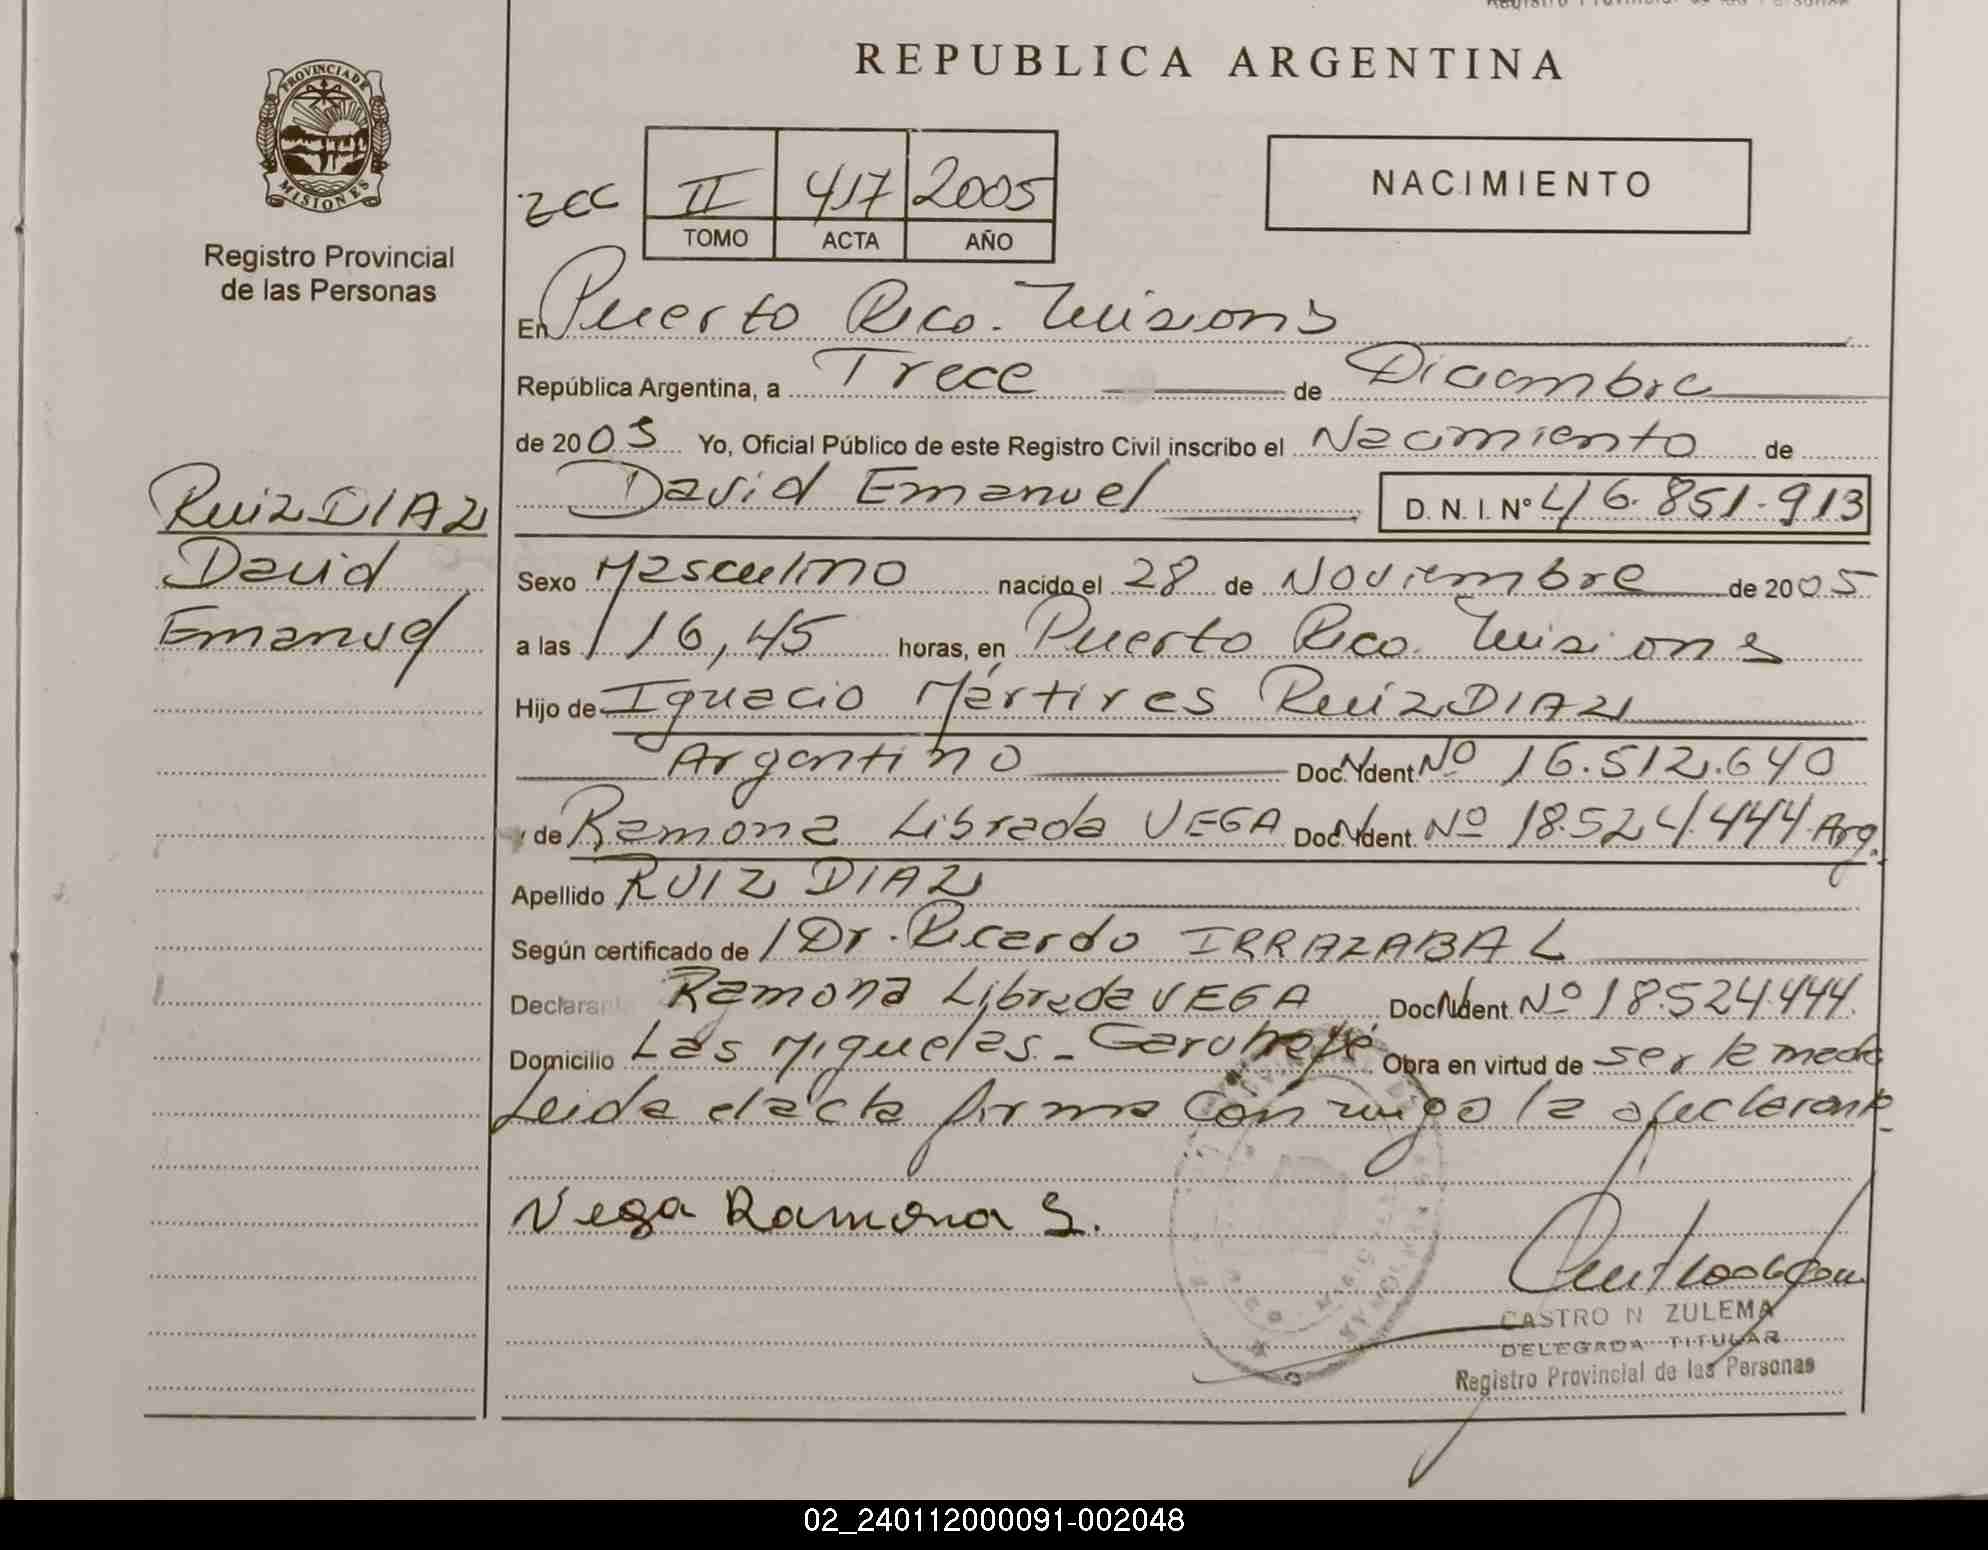 REPUBLICA ARGENTINA
PROVINCIA DE
MISIONES
Registro Provincial
de las Personas
II 417 2005
TOMO ACTA AÑO
NACIMIENTO
En Puerto Rico. Misiones
República Argentina, a Trece de Diciembre
de 2005 Yo, Oficial Público de este Registro Civil inscribo el Nacimiento de
David Emanuel D. N. I. Nº 46.851.913
Ruiz DIAZ
David
Emanuel
Sexo Masculino nacido el 28 de Noviembre de 2005
a las 16,45 horas, en Puerto Rico. Misiones
Hijo de Ignacio Mártires Ruiz DIAZ
Argentino Doc. Ident Nº 16.512.640
y de Ramona Librada VEGA Doc. Ident. Nº 18.524.444. Arg.
Apellido RUIZ DIAZ
Según certificado de Dr. Ricardo IRRAZABAL
Declarante Ramona Librada VEGA Doc. Ident Nº 18.524.444.
Domicilio Las Miguelas - Garuhapé Obra en virtud de ser la madre
Leida el acta firma conmigo la declarante
Vega Ramona L.
CASTRO N ZULEMA
DELEGADA TITULAR
Registro Provincial de las Personas
02_240112000091-002048